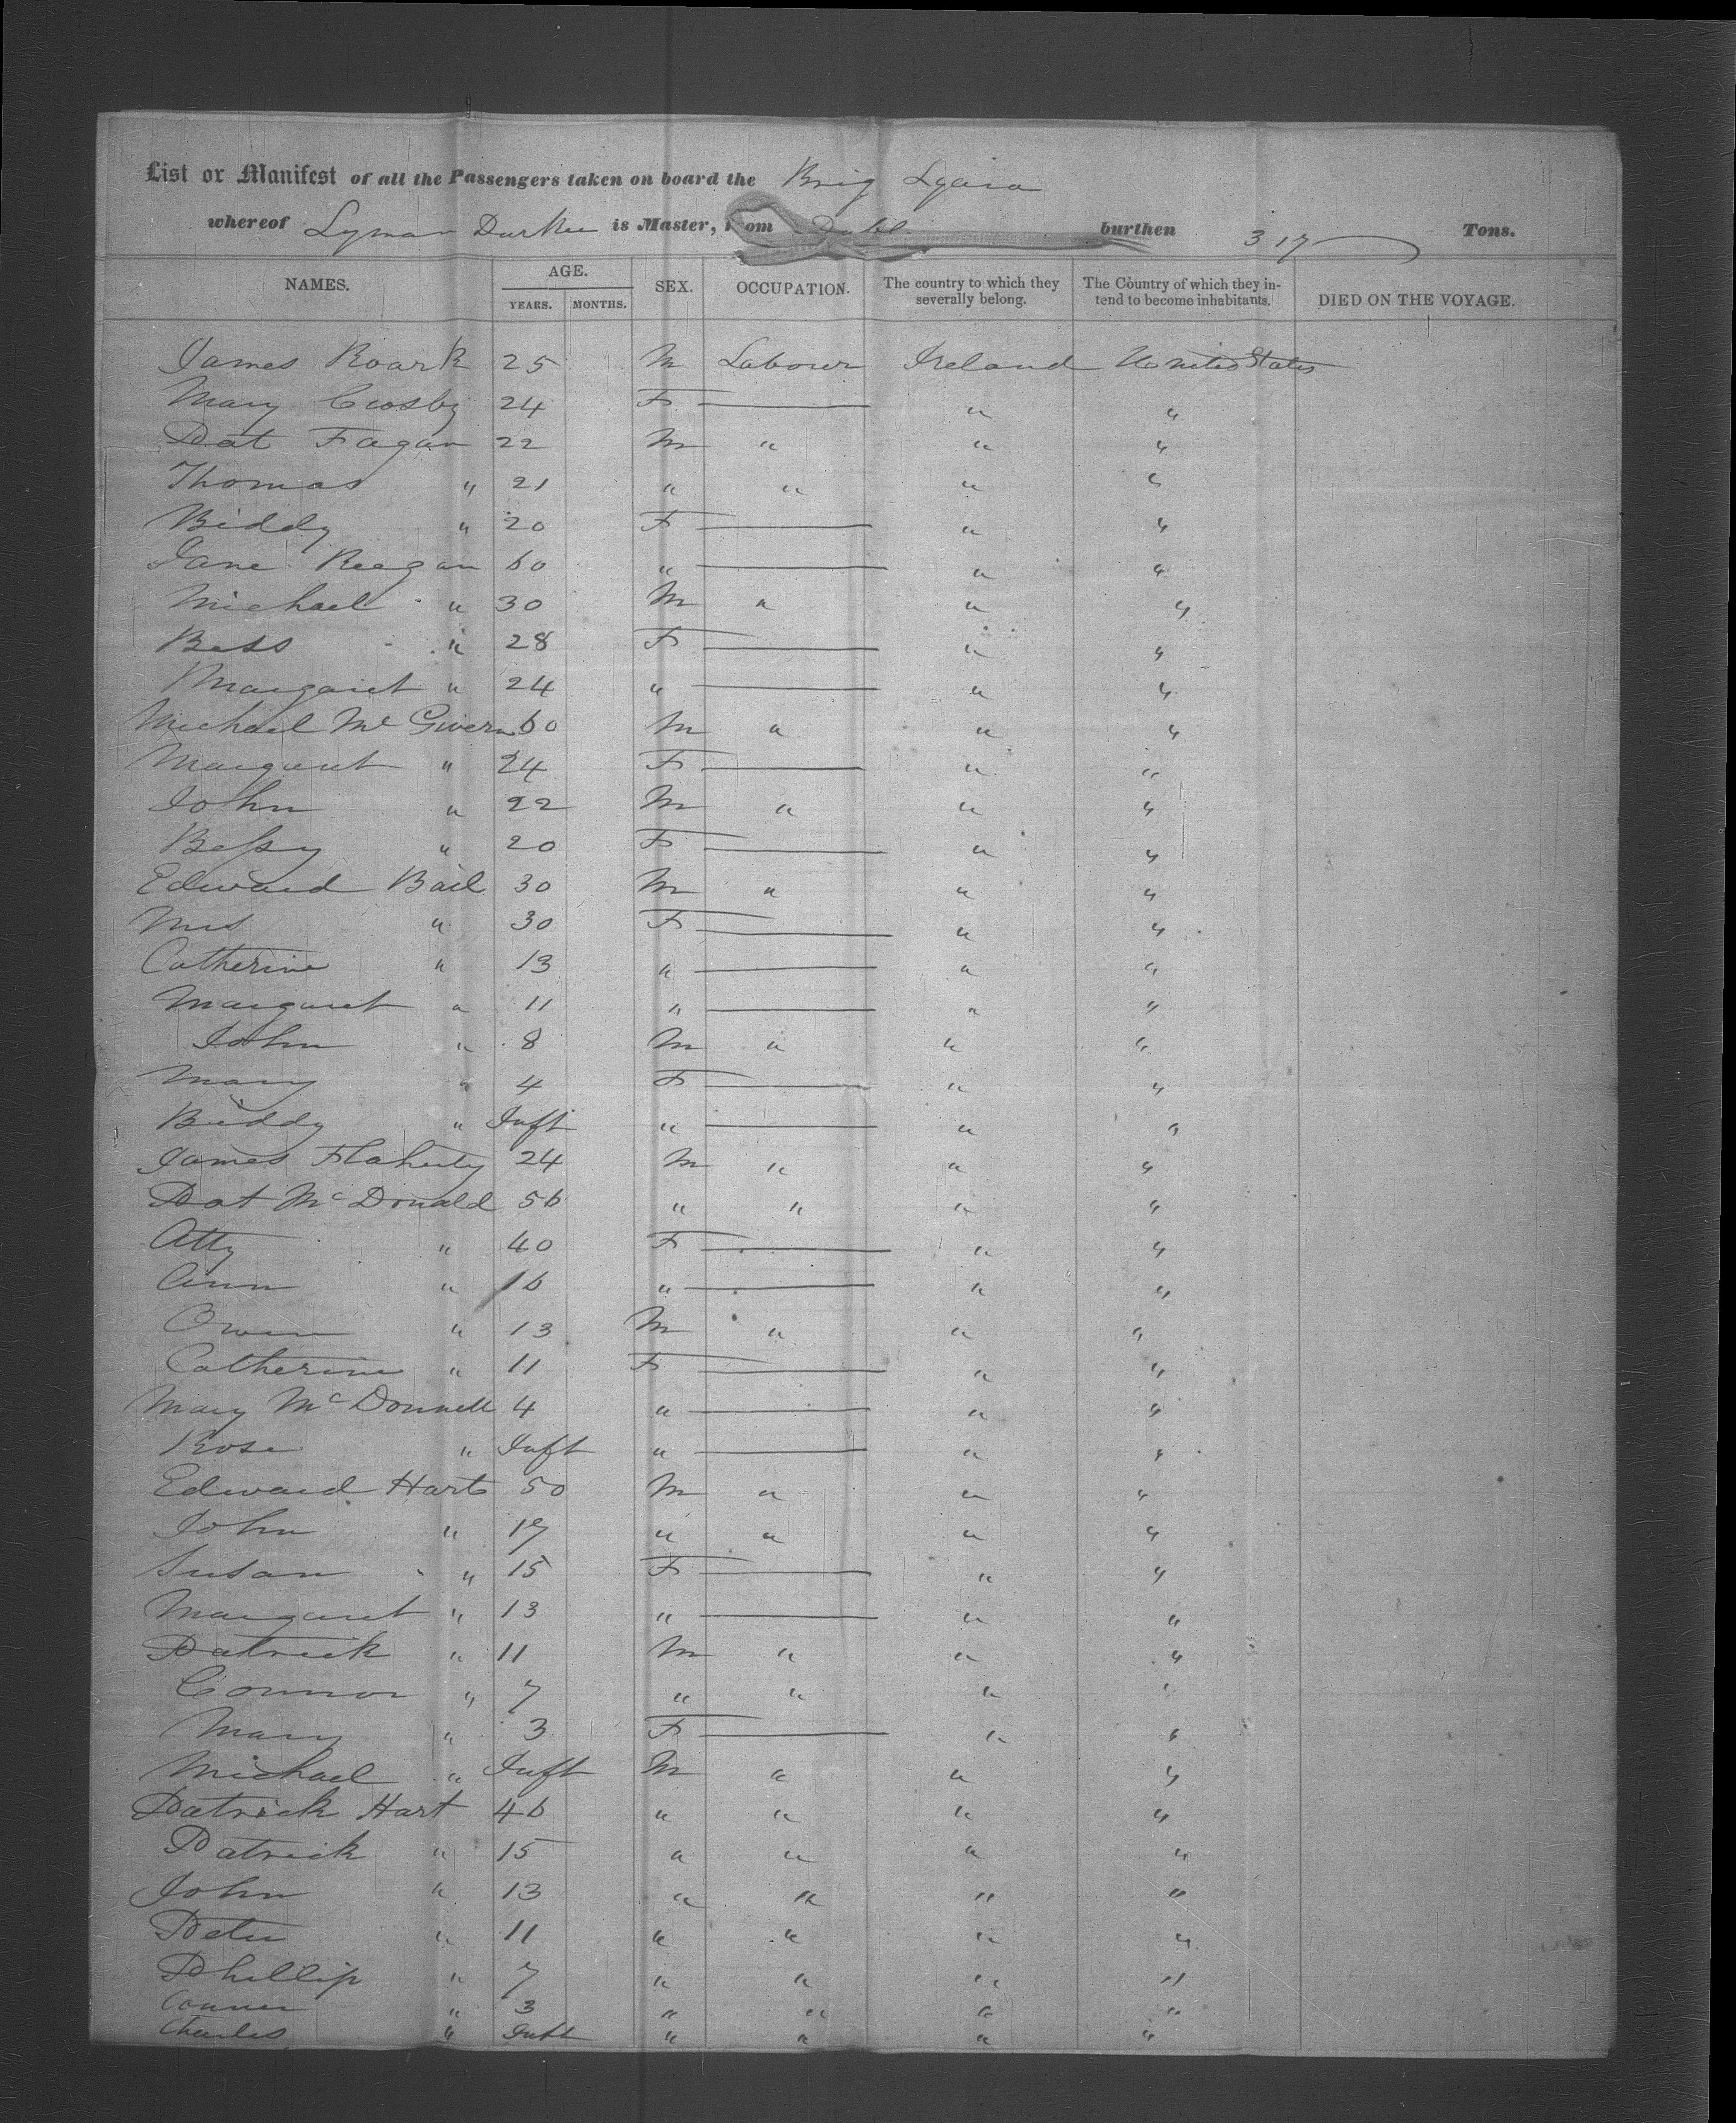 List or Manifest of all the Passengers taken on board the Brig
whereof Lyman Durkee is Master, from burthen 317 Tons.
NAMES. AGE. YEARS. MONTHS. SEX. OCCUPATION. The country to which they severally belong. The Country of which they intend to become inhabitants. DIED ON THE VOYAGE.
James Roark 25 M Labour Ireland United States
Mary Crosby 24 F — " "
Pat Fagan 22 M " " "
Thomas " 21 " " " "
Biddy " 20 F — " "
Jane Reagan 60 " — " "
Michael " 30 M " " "
Bess " 28 F — " "
Margaret " 24 " — " "
Michael Mc Givern 60 M " " "
Margaret " 24 F — " "
John " 22 M " " "
Bessy " 20 F — " "
Edward Bail 30 M " " "
Mrs " 30 F — " "
Catherine " 13 " — " "
Margaret " 11 " — " "
John " 8 M " " "
Mary " 4 F — " "
Biddy " Inft " — " "
James Flaherty 24 M " " "
Pat McDonald 56 " " " "
Atty " 40 F — " "
Ann " 16 " — " "
Owen " 13 M " " "
Catherine " 11 F — " "
Mary McDonnell 4 " — " "
Rose " Inft " — " "
Edward Hart 50 M " " "
John " 17 " " " "
Susan " 15 F — " "
Margaret " 13 " — " "
Patrick " 11 M " " "
Connor " 7 " " " "
Mary " 3 F — " "
Michael " Inft M " " "
Patrick Hart 46 " " " "
Patrick " 15 " " " "
John " 13 " " " "
Peter " 11 " " " "
Phillip " 7 " " " "
Conner " 3 " " " "
Charles " Inft " " " "